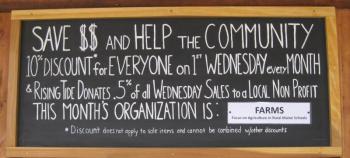 SAVE $$ AND HELP THE COMMUNITY
10% DISCOUNT for EVERYONE ON 1ST WEDNESDAY every MONTH
& RISING TIDE DONATES .5% of all WEDNESDAY SALES to a LOCAL NON PROFIT
THIS MONTH'S ORGANIZATION IS:
FARMS
Focus on Agriculture in Rural Maine Schools
* Discount does not apply to sale items and cannot be combined w/other discounts